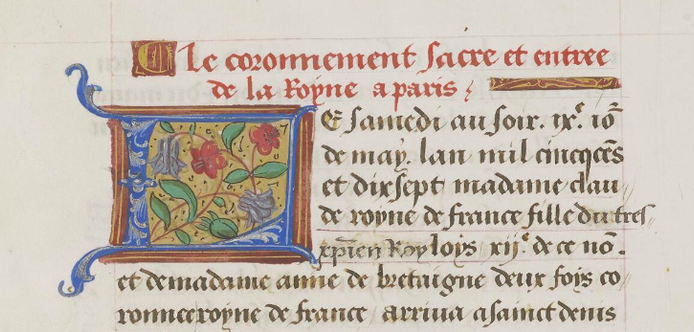 Le coronnement sacre et entree
de la Royne a paris
LE samedi au soir. ix.e io.r
de may. lan mil cincqce͂s
et dixsept madame clau
de royne de france fille du tres
xp̅ien Roy loys xij.e de ce no͂.
et de madame anne de bretaigne deux foys co
ronnee royne de france arriua a sainct denis